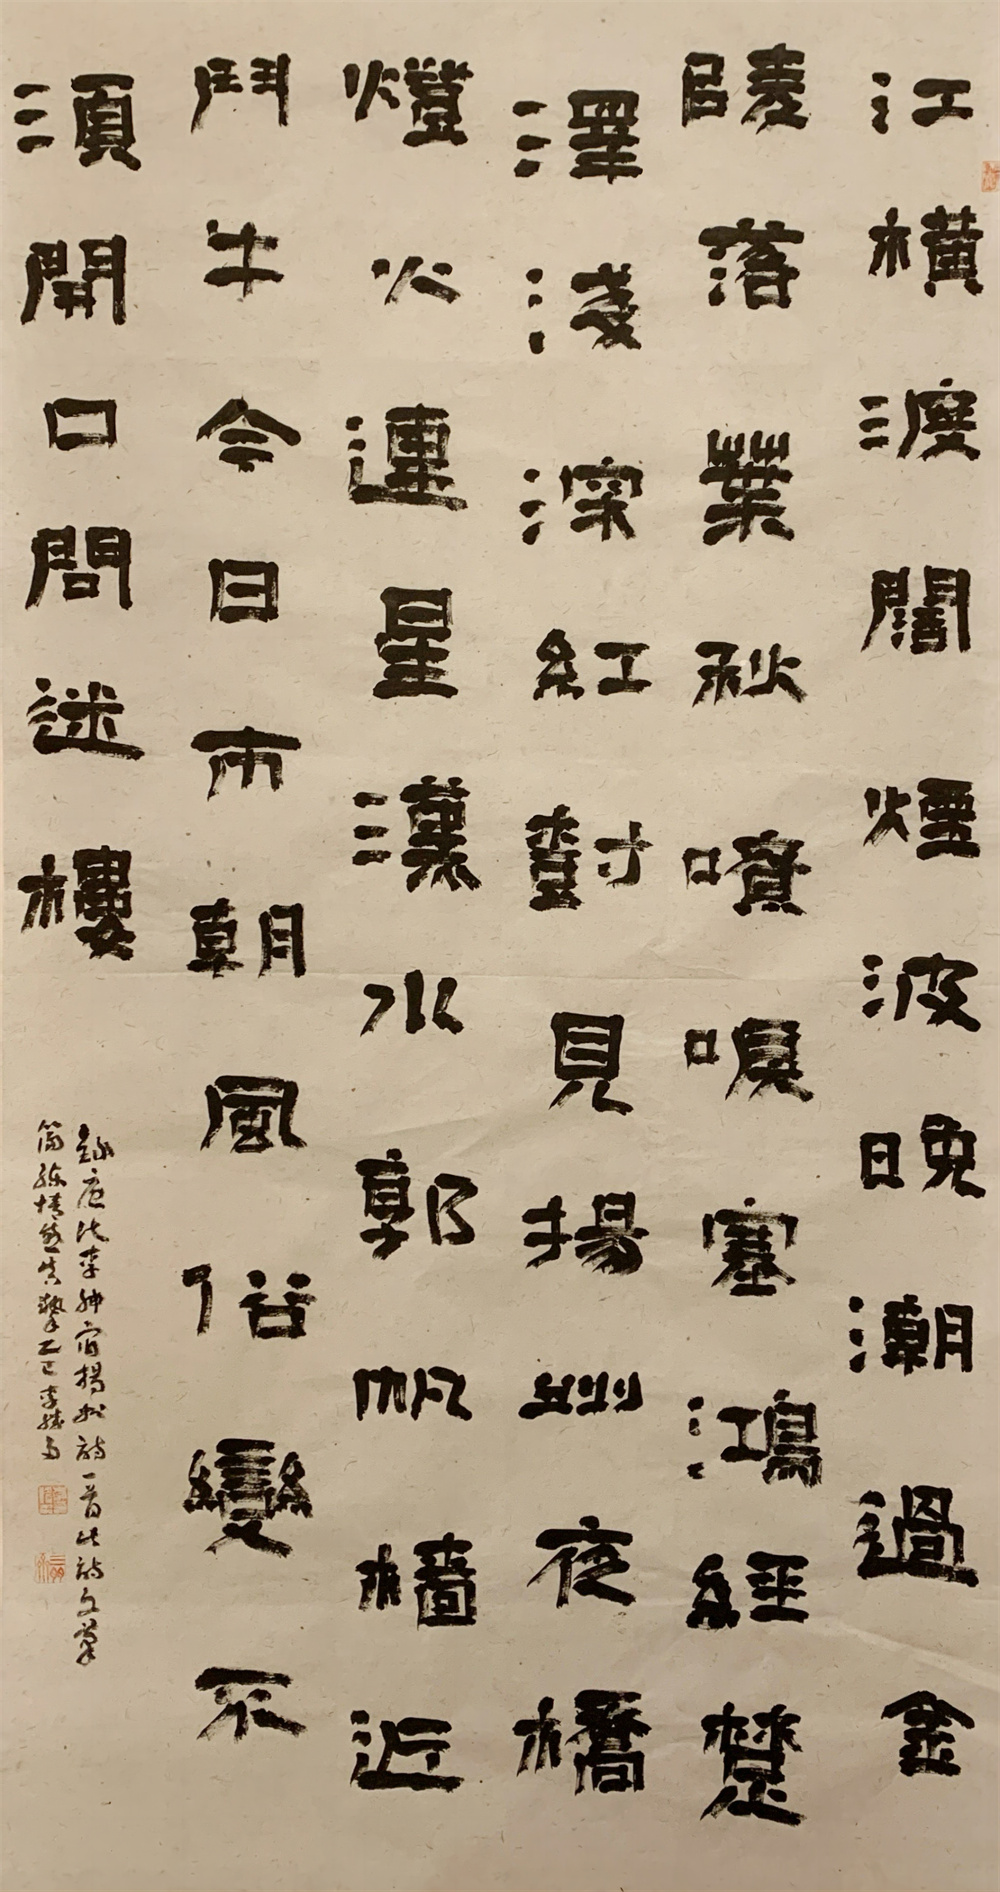 江橫渡闊煙波晚潮過金
陵落葉秋嘹唳塞鴻經楚
澤淺深紅樹見揚州夜橋
燈火連星漢水郭帆檣近
鬥牛今日市朝風俗變不
須開口問迷樓
錄唐代李紳宿揚州詩一首此詩文筆
簡練情感真摯乙巳李